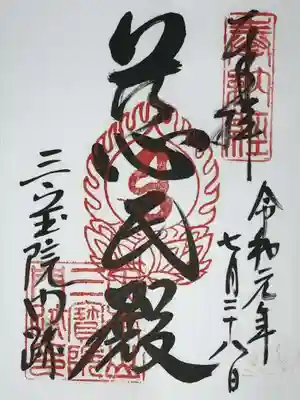 奉拝
令和元年
七月二十八日
慈氏殿
三宝院門跡
三寶院